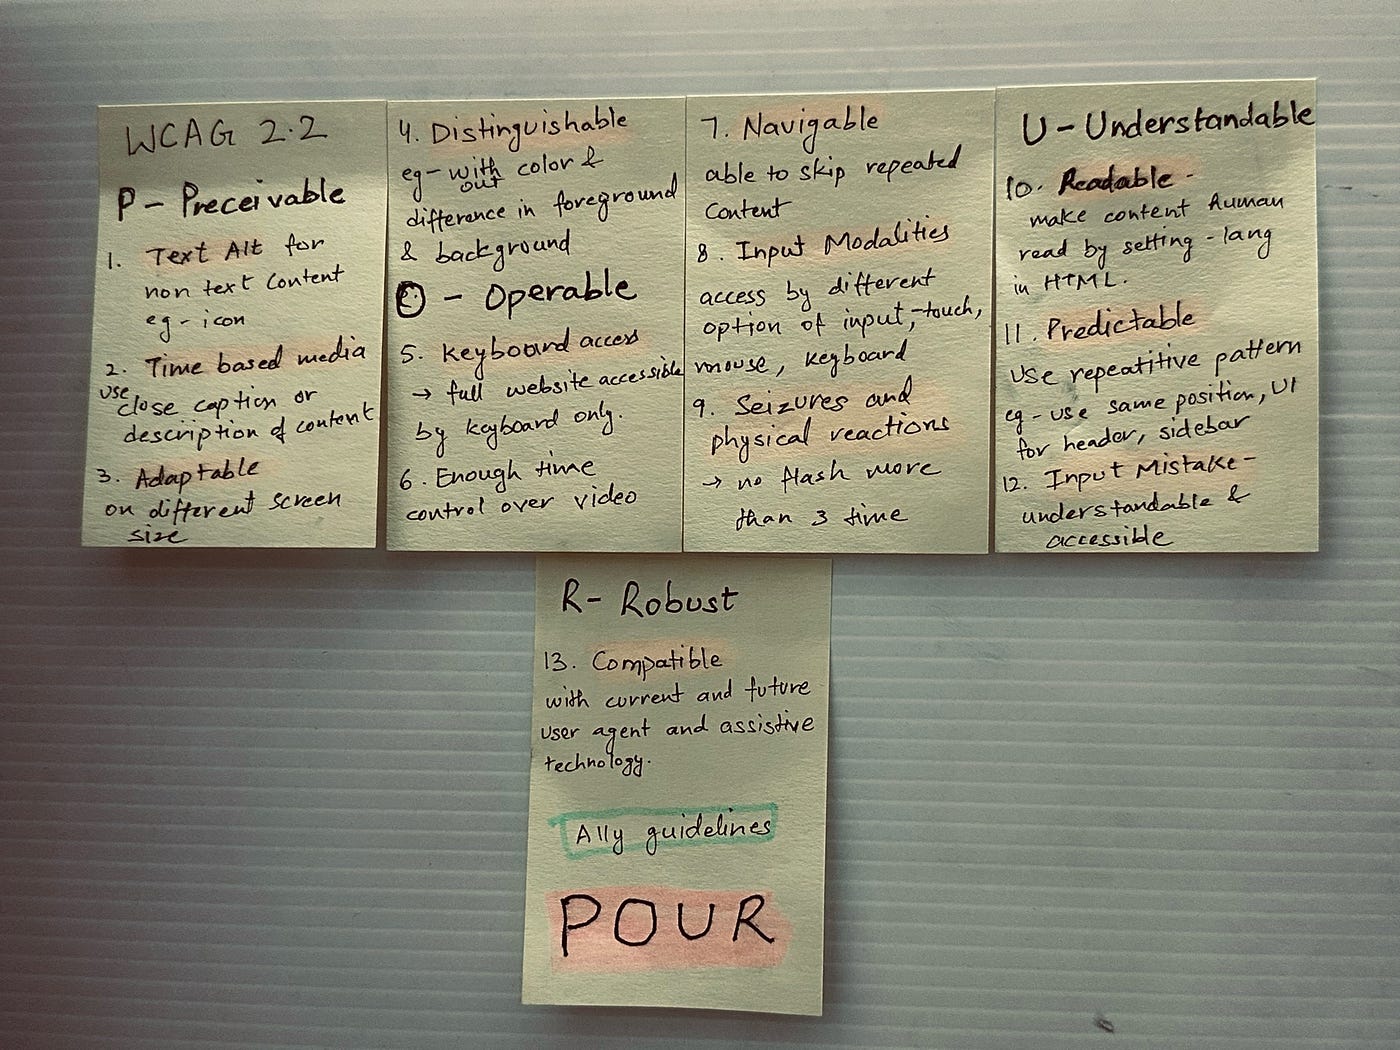 WCAG 2.2
P - Preceivable
1. Text Alt for
non text Content
eg - icon
2. Time based media
use close caption or
description of content
3. Adaptable
on different screen
size
4. Distinguishable
eg - without color &
difference in foreground
& background
O - Operable
5. Keyboard access
→ full website accessible
by keyboard only.
6. Enough time
control over video
7. Navigable
able to skip repeated
Content
8. Input Modalities
access by different
option of input, - touch,
mouse, keyboard
9. Seizures and
physical reactions
→ no flash more
than 3 time
U - Understandable
10. Readable -
make content human
read by setting - lang
in HTML.
11. Predictable
use repeatitive pattern
eg - use same position, UI
for header, sidebar
12. Input Mistake -
understandable &
accessible
R - Robust
13. Compatible
with current and future
user agent and assistive
technology.
A11y guidelines
POUR